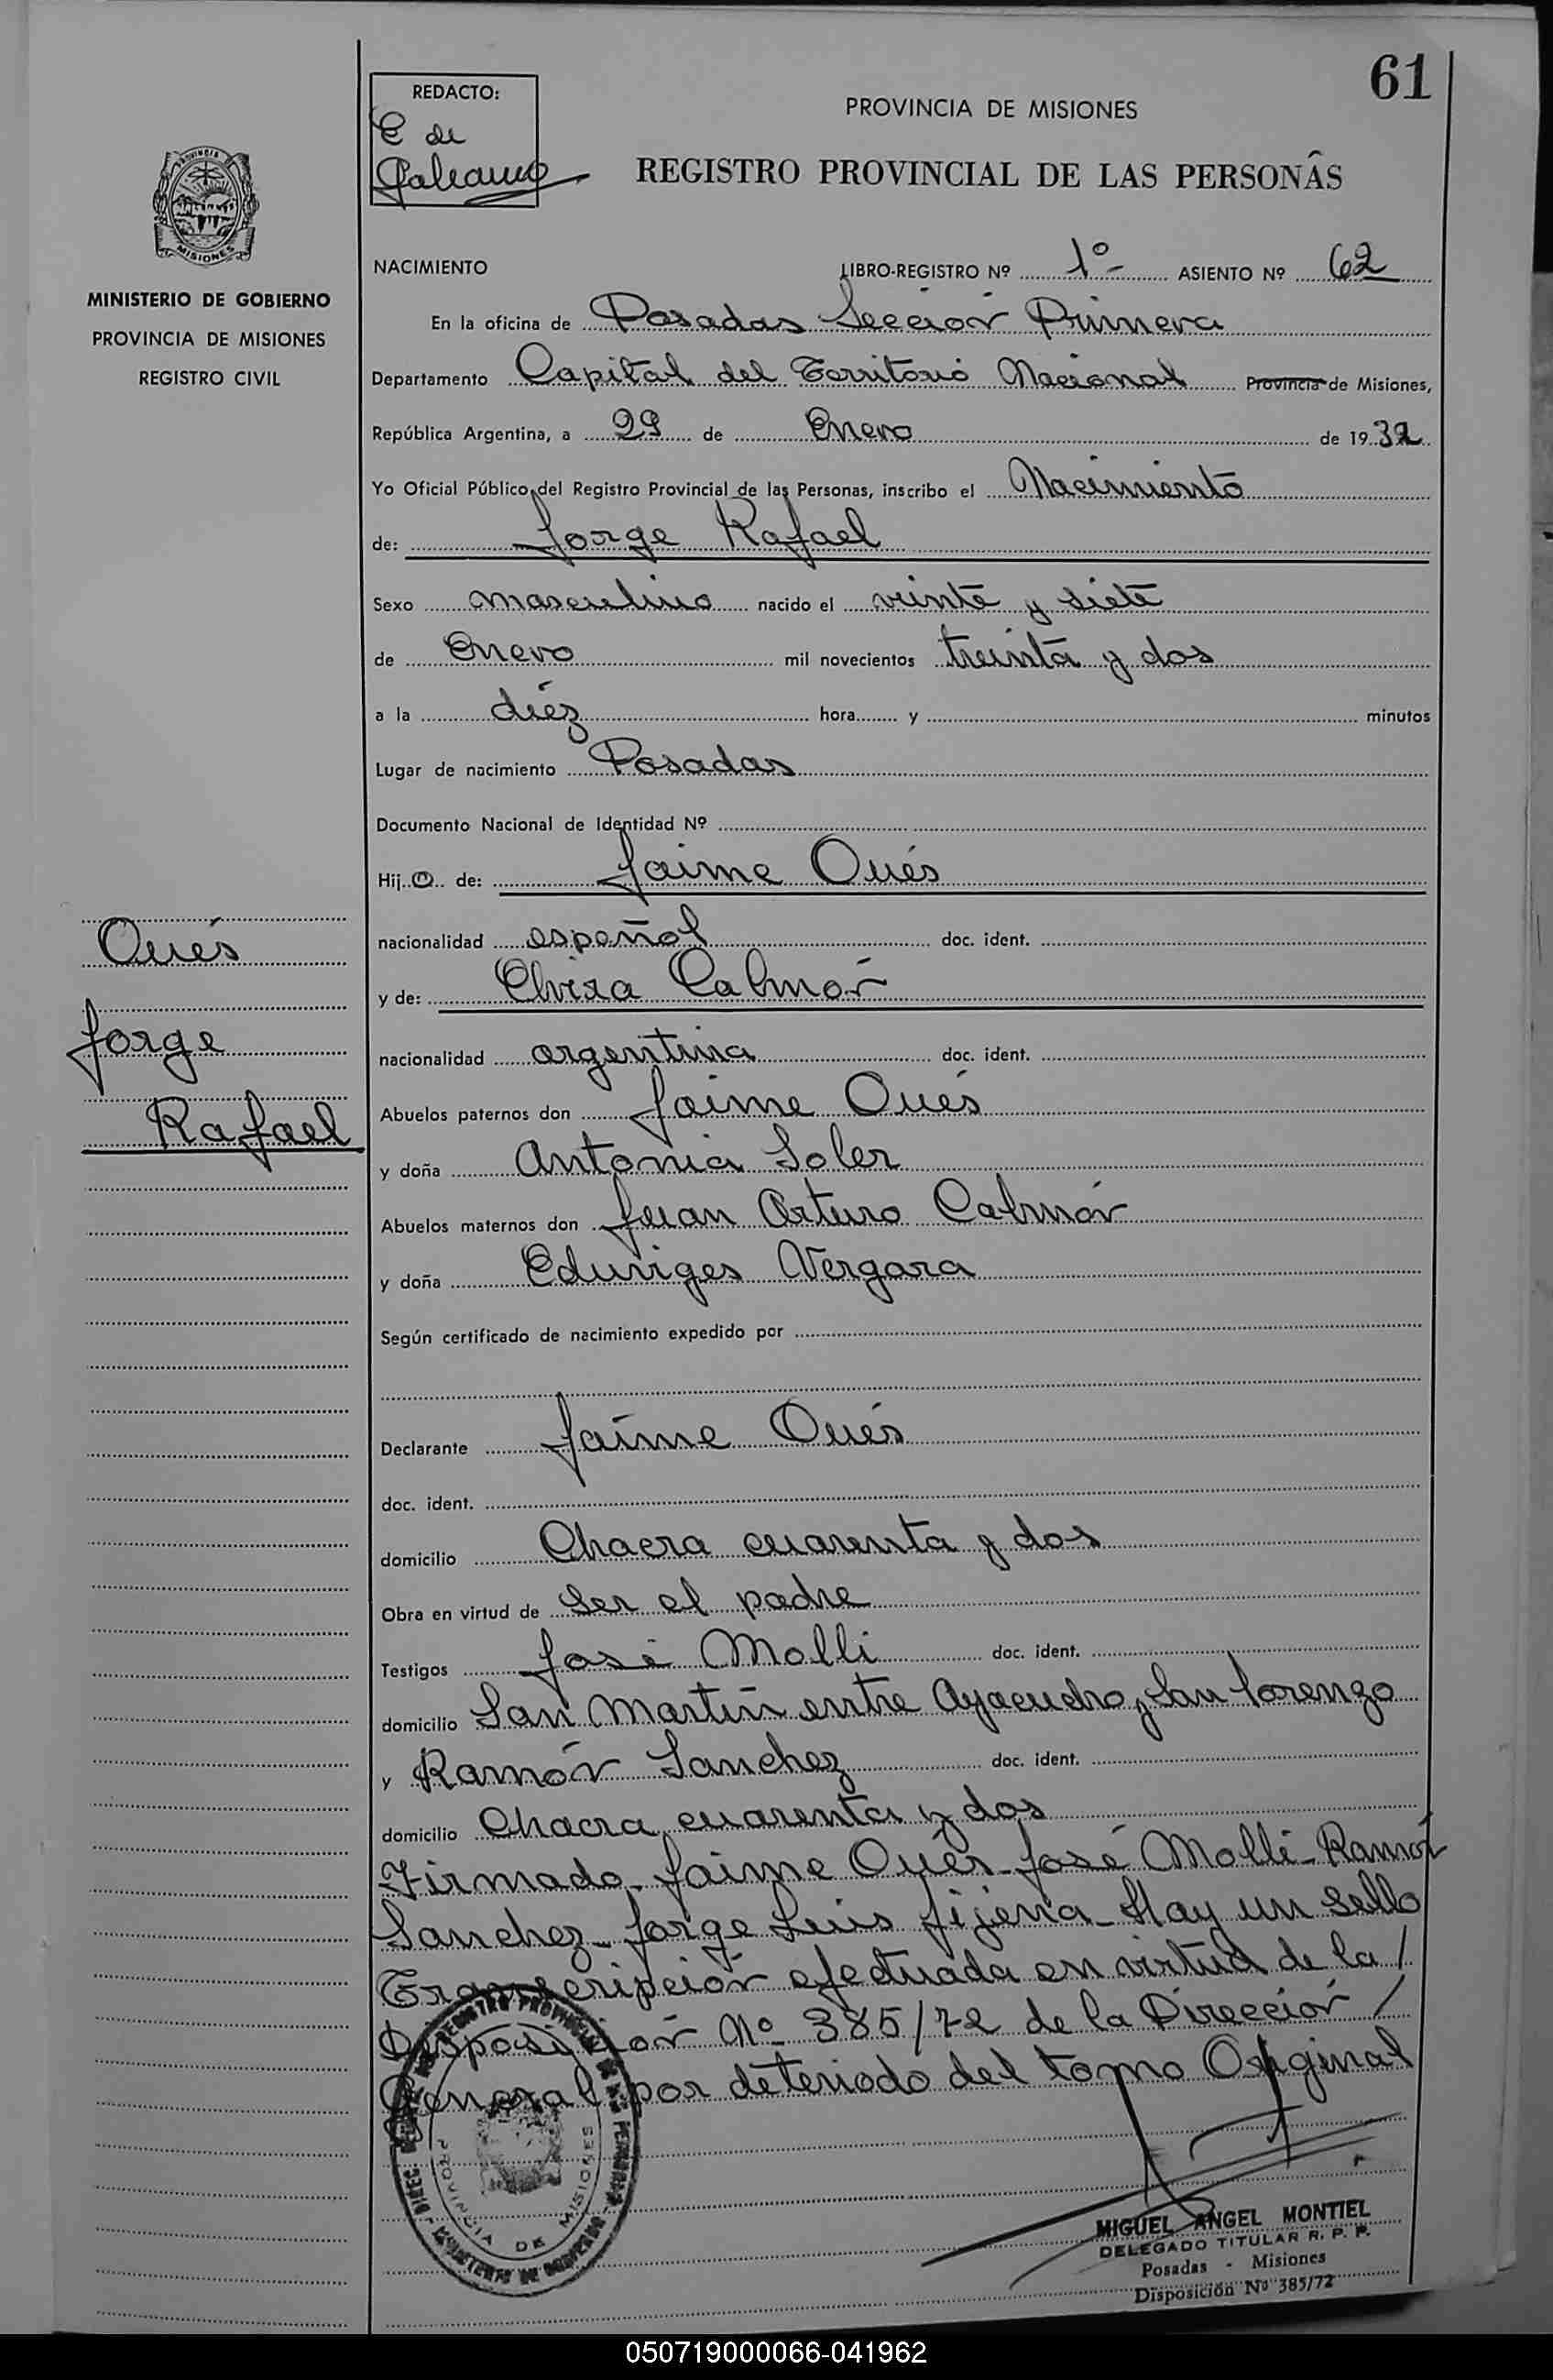 61
REDACTO:
E de
Galeano
PROVINCIA DE MISIONES
REGISTRO PROVINCIAL DE LAS PERSONAS
MISIONES
MINISTERIO DE GOBIERNO
PROVINCIA DE MISIONES
REGISTRO CIVIL
NACIMIENTO LIBRO-REGISTRO Nº 1º ASIENTO Nº 62
En la oficina de Posadas Sección Primera
Departamento Capital del Territorio Nacional Provincia de Misiones,
República Argentina, a 29 de Enero de 1932
Yo Oficial Público del Registro Provincial de las Personas, inscribo el Nacimiento
de: Jorge Rafael
Sexo masculino nacido el veinte y siete
de Enero mil novecientos treinta y dos
a la diéz hora y minutos
Lugar de nacimiento Posadas
Documento Nacional de Identidad Nº
Hij o de: Jaime Oués
nacionalidad español doc. ident.
y de: Elvira Calmón
nacionalidad argentina doc. ident.
Abuelos paternos don Jaime Oués
y doña Antonia Soler
Abuelos maternos don Juan Arturo Calmón
y doña Eduviges Vergara
Según certificado de nacimiento expedido por
Declarante Jaime Oués
doc. ident.
domicilio Chacra cuarenta y dos
Obra en virtud de Ser el padre
Testigos José Molli doc. ident.
domicilio San Martín entre Ayacucho y San Lorenzo
y Ramón Sanchez doc. ident.
domicilio Chacra cuarenta y dos
Firmado- Jaime Oués- José Molli- Ramón
Sanchez- Jorge Luis Jijena- Hay un sello
Transcripción efectuada en virtud de la /
Disposición Nº 385/72 de la Dirección /
General por deteriodo del tomo Original
Oués
Jorge
Rafael
PROVINCIA DE MISIONES
MIGUEL ANGEL MONTIEL
DELEGADO TITULAR R. P. P.
Posadas - Misiones
Disposición Nº 385/72
050719000066-041962